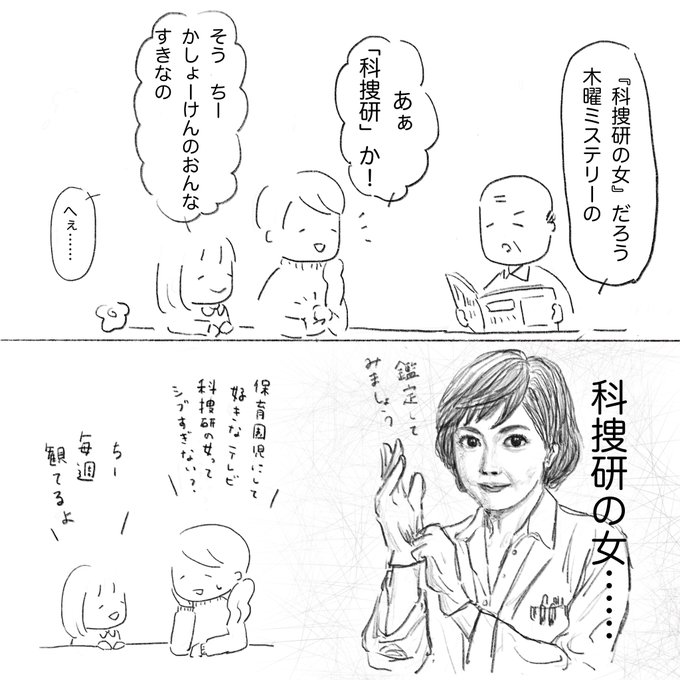 『科捜研の女』だろう
木曜ミステリーの
あぁ
「科捜研」か!
そう ちー
かしょーけんのおんな
すきなの
へぇ……
科捜研の女……
鑑定して
みましょう
保育園児にして
好きなテレビ
科捜研の女って
シブすぎない?
ちー
毎週
観てるよ